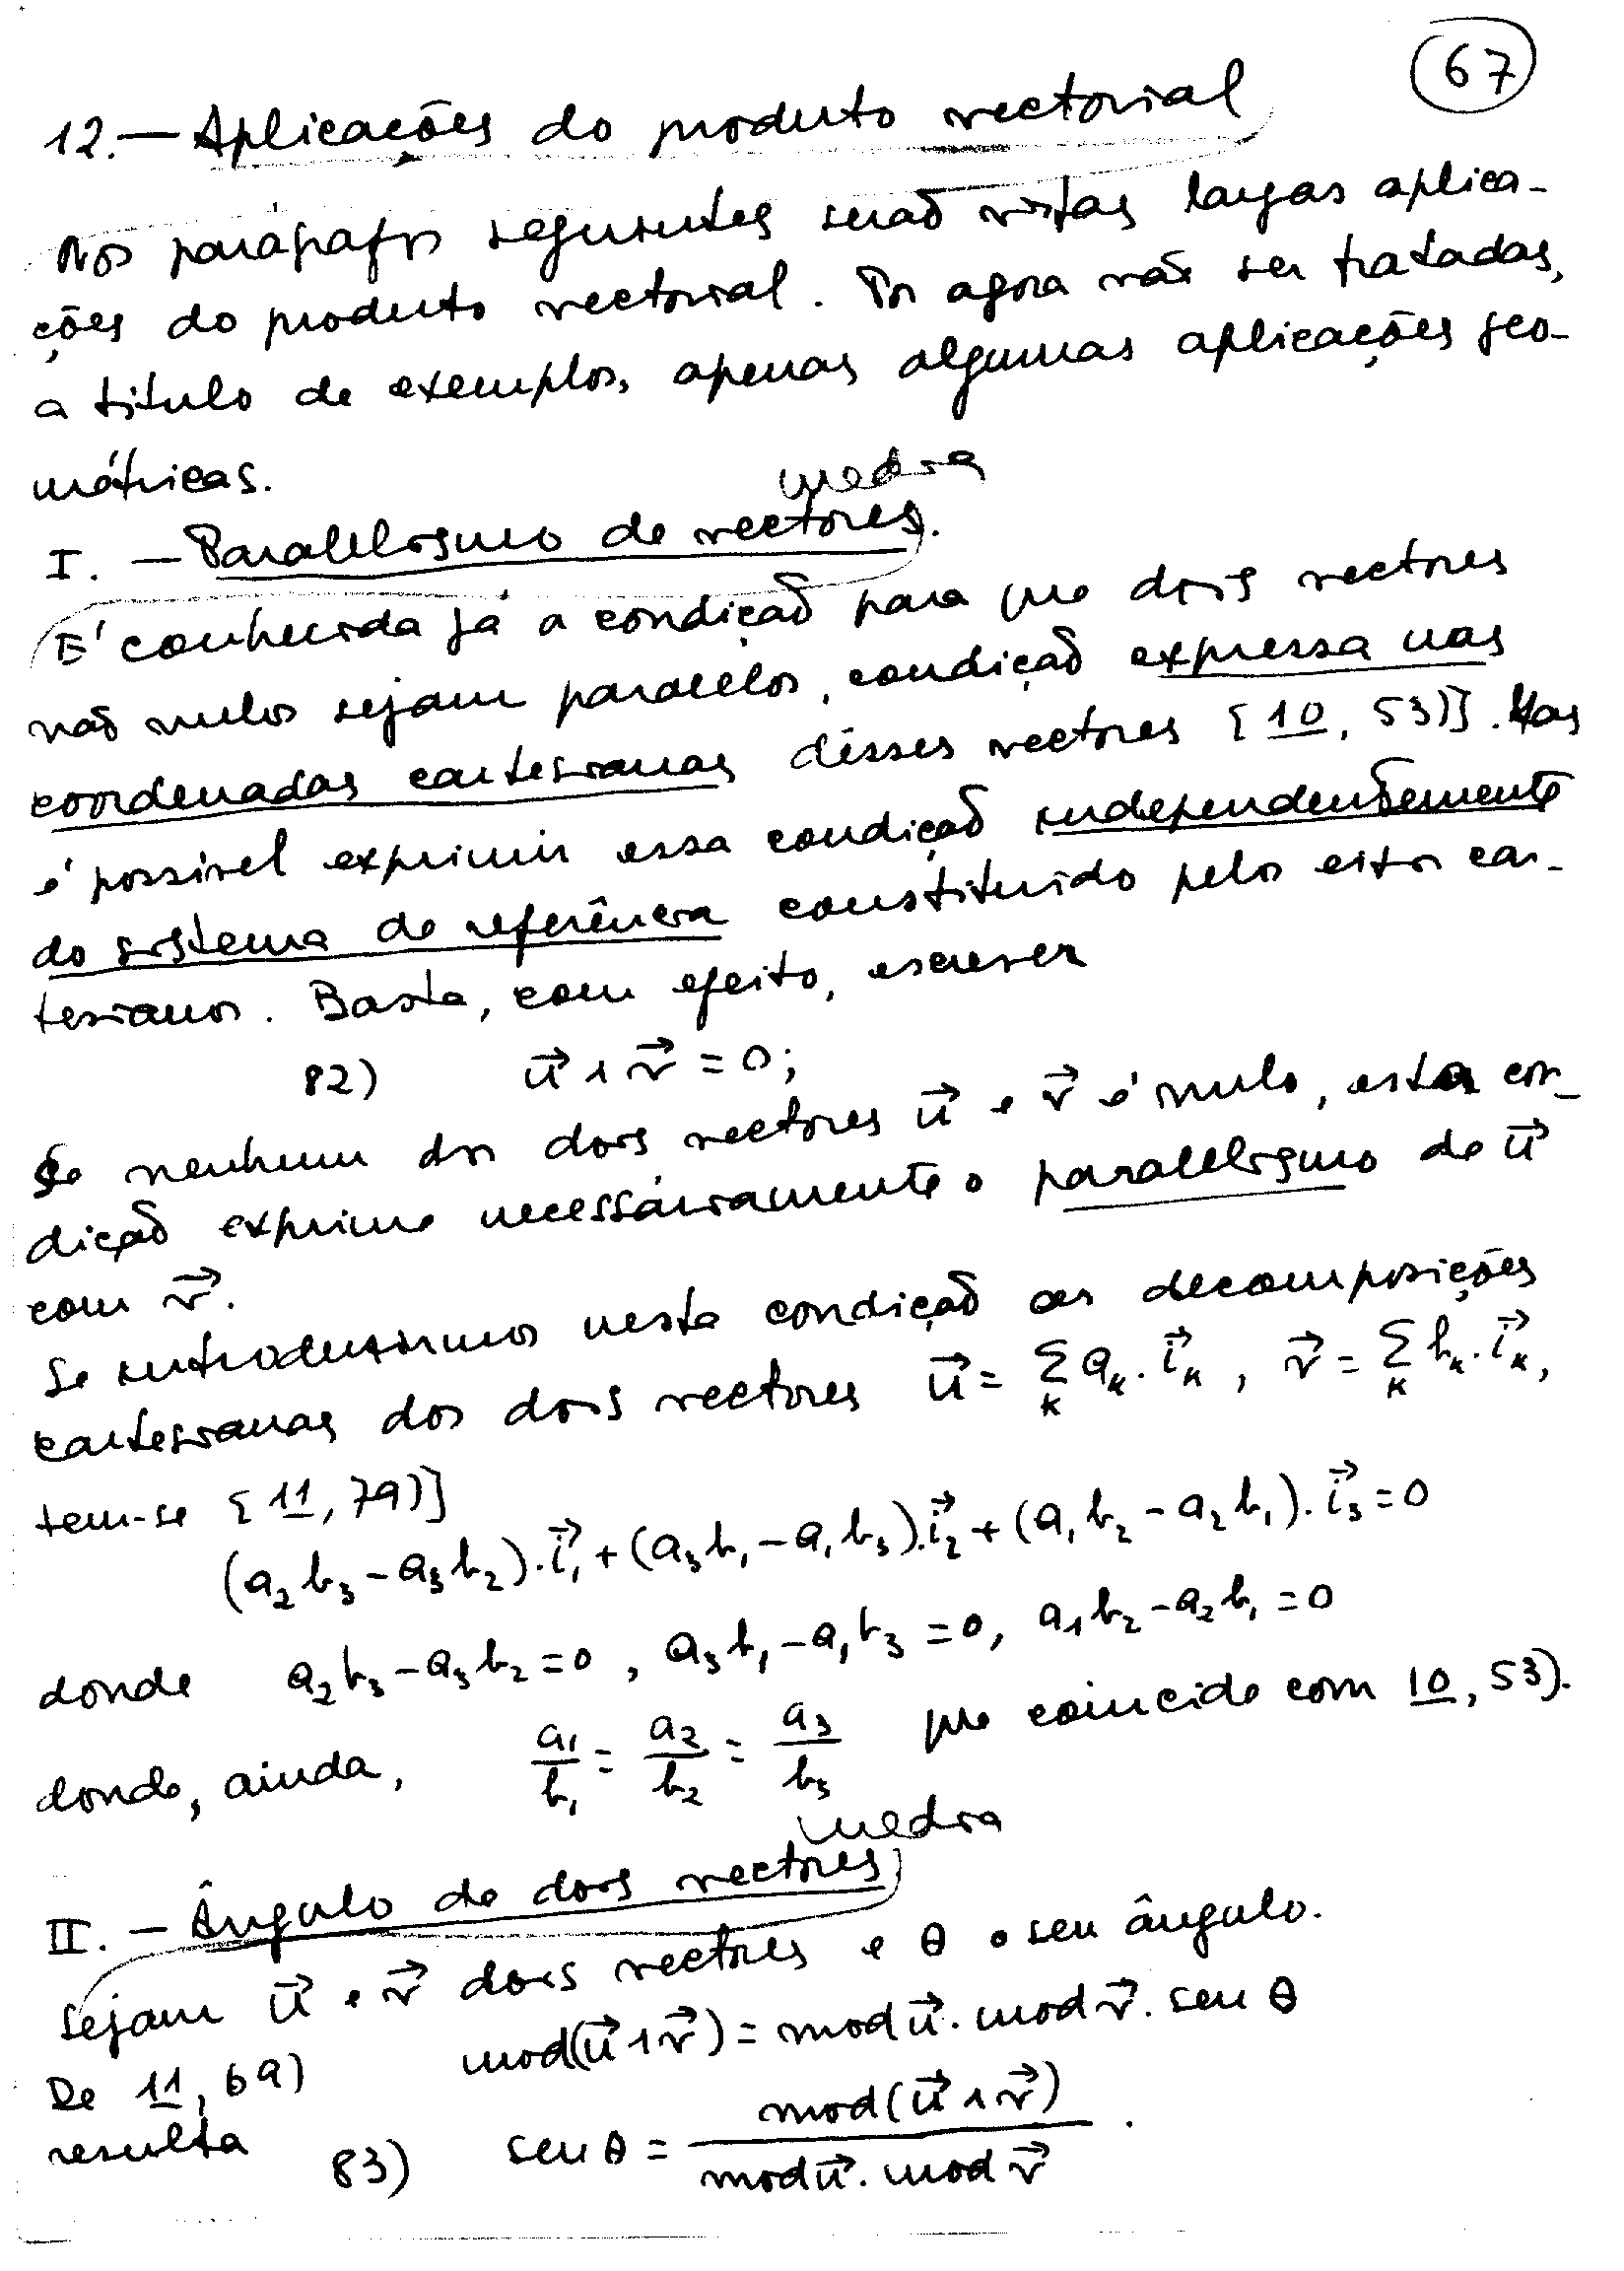 67
12.— Aplicações do produto vectorial
Nos parágrafos seguintes serão vistas largas aplica-
ções do produto vectorial. Por agora vão ser tratadas,
a titulo de exemplos, apenas algumas aplicações geo-
métricas.
media
I. — Paralelismo de vectores.
É conhecida já a condição para que dois vectores
não nulos sejam paralelos, condição expressa nas
coordenadas cartesianas dêsses vectores [10, 53)]. Mas
é possivel exprimir essa condição independentemente
do sistema de referência constituido pelos eixos car-
tesianos. Basta, com efeito, escrever
82) u⃗ ∧ v⃗ = 0;
Se nenhum dos dois vectores u⃗ e v⃗ é nulo, esta con-
dição exprime necessáriamente o paralelismo de u⃗
com v⃗.
Se introduzirmos nesta condição as decomposições
cartesianas dos dois vectores u⃗ = Σₖ aₖ. i⃗ₖ, v⃗ = Σₖ bₖ. i⃗ₖ,
tem-se [11, 79)]
(a₂b₃ - a₃b₂). i⃗₁ + (a₃b₁ - a₁b₃). i⃗₂ + (a₁b₂ - a₂b₁). i⃗₃ = 0
donde a₂b₃ - a₃b₂ = 0, a₃b₁ - a₁b₃ = 0, a₁b₂ - a₂b₁ = 0
donde, ainda, a₁/b₁ = a₂/b₂ = a₃/b₃ que coincide com 10, 53).
media
II. — Ângulo de dois vectores
Sejam u⃗ e v⃗ dois vectores e θ o seu ângulo.
De 11, 69) mod(u⃗ ∧ v⃗) = mod u⃗. mod v⃗. sen θ
resulta
83) sen θ = mod(u⃗ ∧ v⃗) / mod u⃗. mod v⃗ .